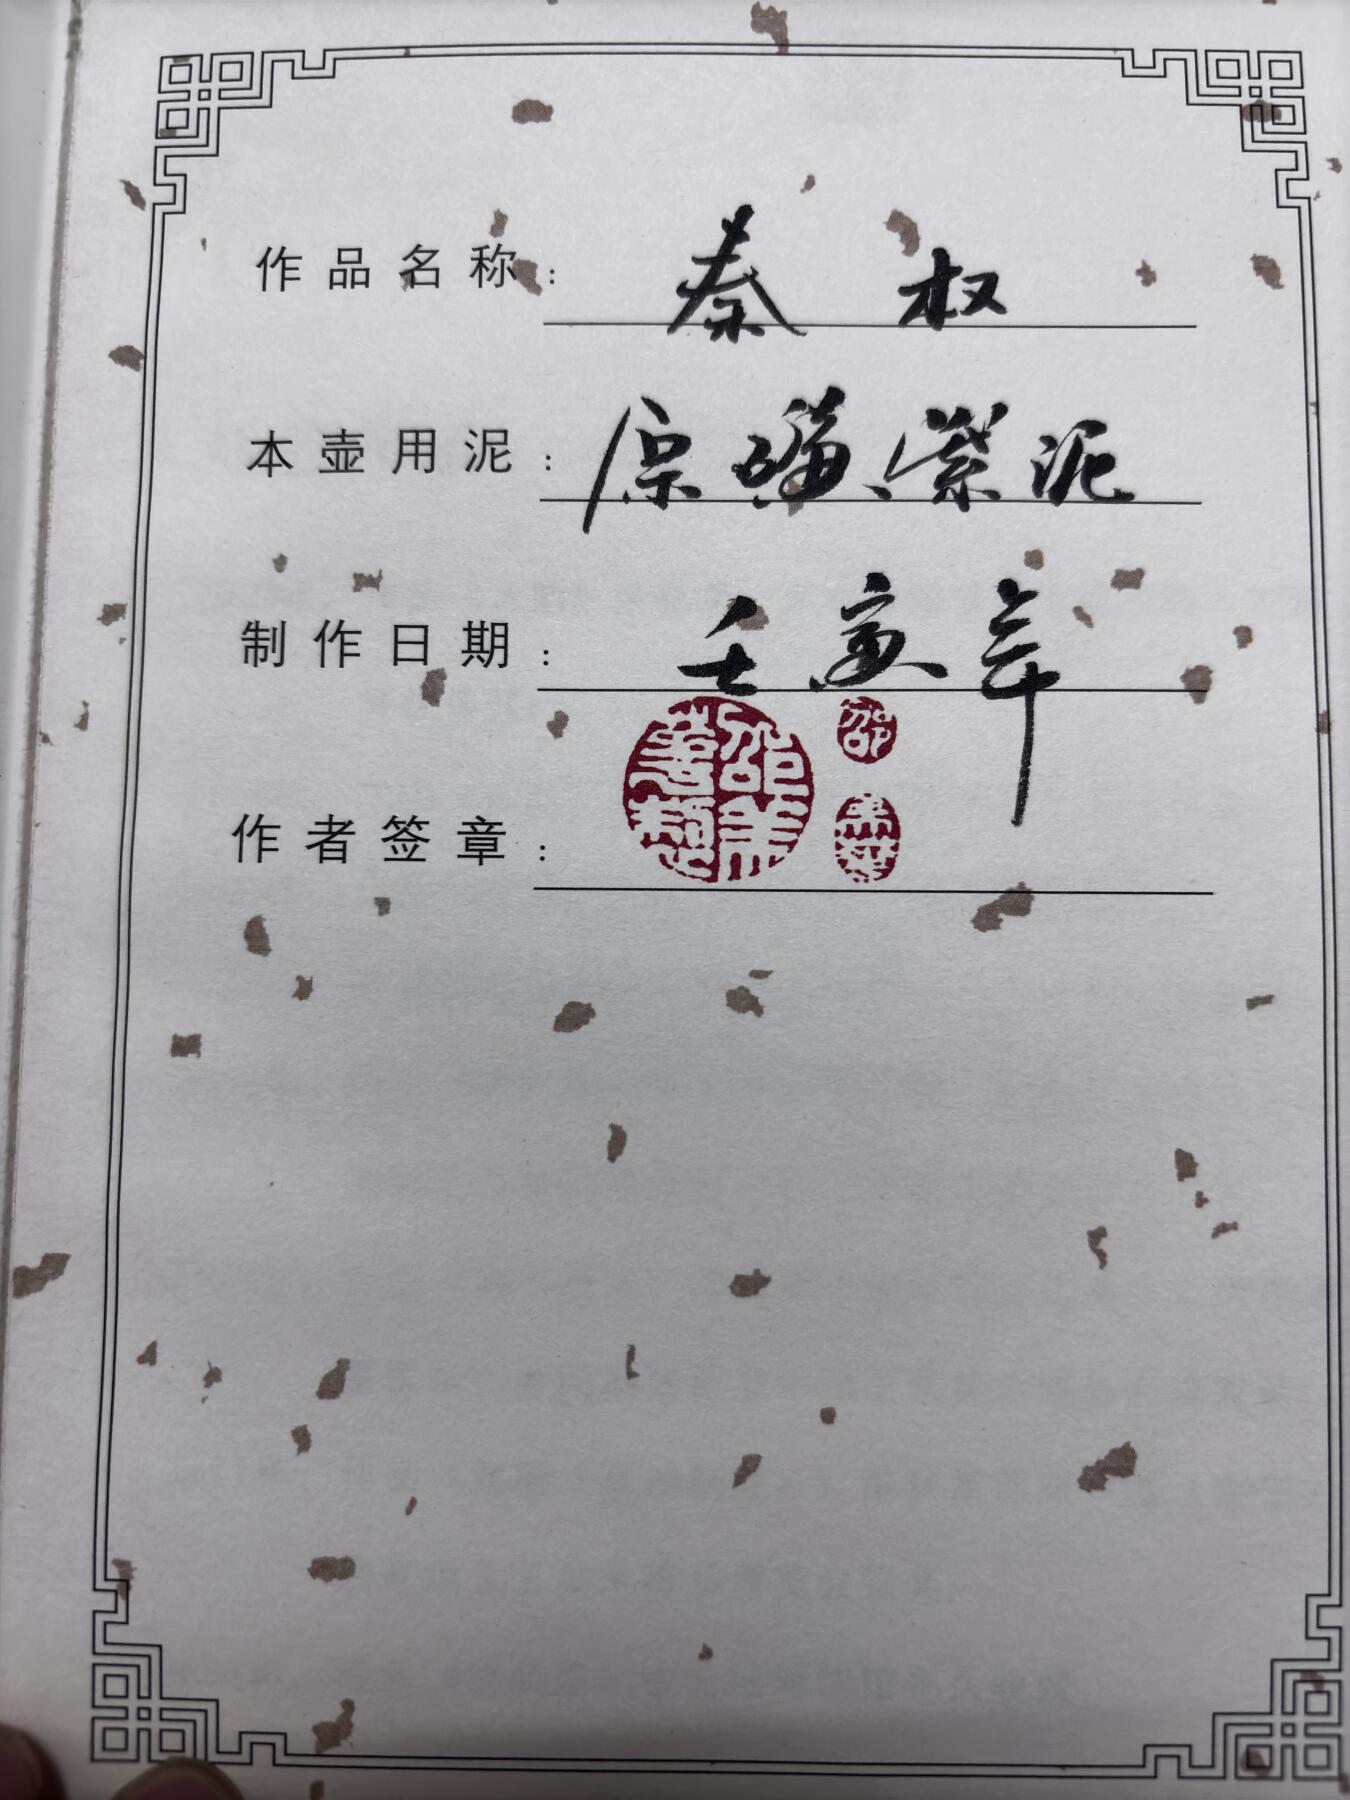 作品名称：秦权
本壶用泥：原礦紫泥
制作日期：壬寅年
作者签章：
邵